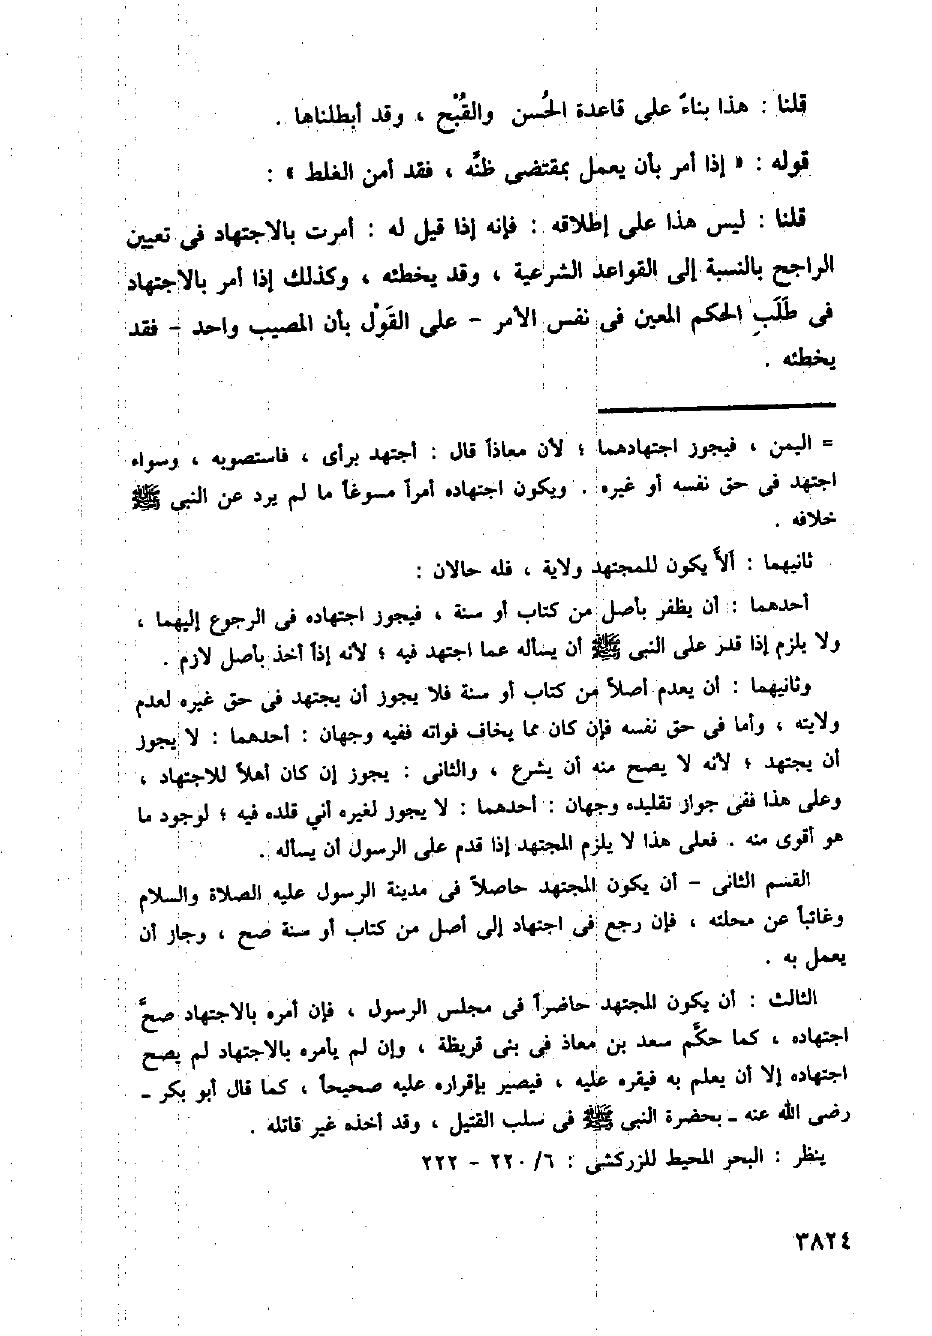 قلنا : هذا بناءً على قاعدة الحُسن والقُبْح ، وقد أبطلناها .
قوله : « إذا أمر بأن يعمل بمقتضى ظنَّه ، فقد أمن الغلط » :
قلنا : ليس هذا على إطلاقه : فإنه إذا قيل له : أمرت بالاجتهاد فى تعيين
الراجح بالنسبة إلى القواعد الشرعية ، وقد يخطئه ، وكذلك إذا أمر بالاجتهاد
فى طَلَبِ الحكم المعين فى نفس الأمر - على القَوْل بأن المصيب واحد - فقد
يخطئه .
= اليمن ، فيجوز اجتهادهما ؛ لأن معاذاً قال : أجتهد برأى ، فاستصوبه ، وسواء
اجتهد فى حق نفسه أو غيره . ويكون اجتهاده أمراً مسوغاً ما لم يرد عن النبى ﷺ
خلافه .
ثانيهما : ألاَّ يكون للمجتهد ولاية ، فله حالان :
أحدهما : أن يظفر بأصل من كتاب أو سنة ، فيجوز اجتهاده فى الرجوع إليهما ،
ولا يلزم إذا قدر على النبى ﷺ أن يسأله عما اجتهد فيه ؛ لأنه إذاً أخذ بأصل لازم .
وثانيهما : أن يعدم أصلاً من كتاب أو سنة فلا يجوز أن يجتهد فى حق غيره لعدم
ولايته ، وأما فى حق نفسه فإن كان مما يخاف فواته ففيه وجهان : أحدهما : لا يجوز
أن يجتهد ؛ لأنه لا يصح منه أن يشرع ، والثانى : يجوز إن كان أهلاً للاجتهاد ،
وعلى هذا ففى جواز تقليده وجهان : أحدهما : لا يجوز لغيره أني قلده فيه ؛ لوجود ما
هو أقوى منه . فعلى هذا لا يلزم المجتهد إذا قدم على الرسول أن يسأله .
القسم الثانى - أن يكون المجتهد حاصلاً فى مدينة الرسول عليه الصلاة والسلام
وغائباً عن محلته ، فإن رجع فى اجتهاد إلى أصل من كتاب أو سنة صح ، وجاز أن
يعمل به .
الثالث : أن يكون المجتهد حاضراً فى مجلس الرسول ، فإن أمره بالاجتهاد صحَّ
اجتهاده ، كما حكَّم سعد بن معاذ فى بنى قريظة ، وإن لم يأمره بالاجتهاد لم يصح
اجتهاده إلا أن يعلم به فيقره عليه ، فيصير بإقراره عليه صحيحاً ، كما قال أبو بكر -
رضى الله عنه - بحضرة النبى ﷺ فى سلب القتيل ، وقد أخذه غير قاتله .
ينظر : البحر المحيط للزركشى : ٦/ ٢٢٠ - ٢٢٢
٣٨٢٤